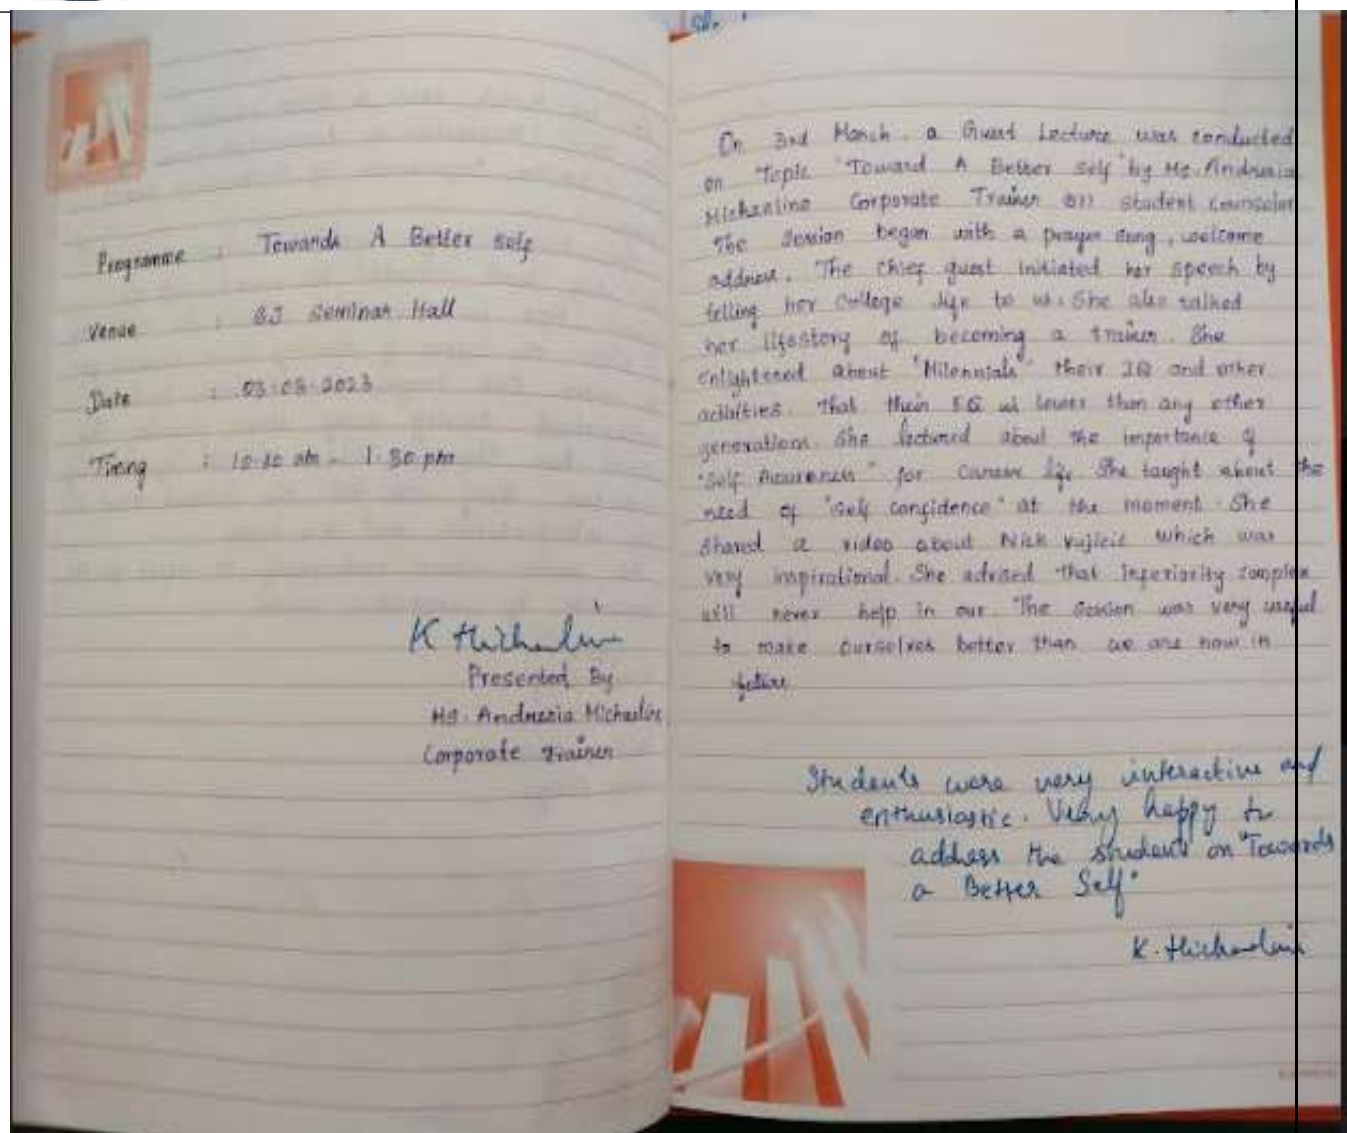 Programme : Towards A Better Self
Venue : SJ Seminar Hall
Date : 03.03.2023
Timing : 10.30 am - 1.30 pm
K Michaeline
Presented By
Ms. Andrezia Michaeline
Corporate Trainer
She
On 3rd March, a Guest Lecture was conducted
on Topic "Toward A Better Self" by Ms. Andrezia
Michaeline Corporate Trainer student counselor
The Session began with a prayer song, welcome
address. The chief guest initiated her speech by
telling her College life to us. She also talked
her lifestory of becoming a trainer. She
enlightened about "Milennials" their IQ and other
activities. That their EQ is lower than any other
generations. She lectured about the importance of
"Self Awareness" for Career life. She taught about the
need of "Self confidence" at the moment. She
Shared a video about Nick Vujicic which was
very inspirational. She advised that Inferiority complex
will never help in our. The Session was very useful
to make ourselves better than we are now in
future
Students were very interactive and
enthusiastic. Very happy to
address the students on "Towards
a Better Self"
K. Michaeline